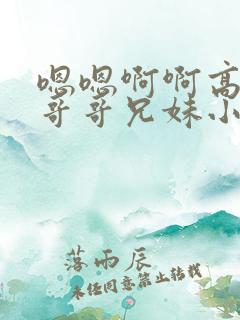 嗯嗯啊啊高
哥哥兄妹小
落雨辰
未经同意禁止转载